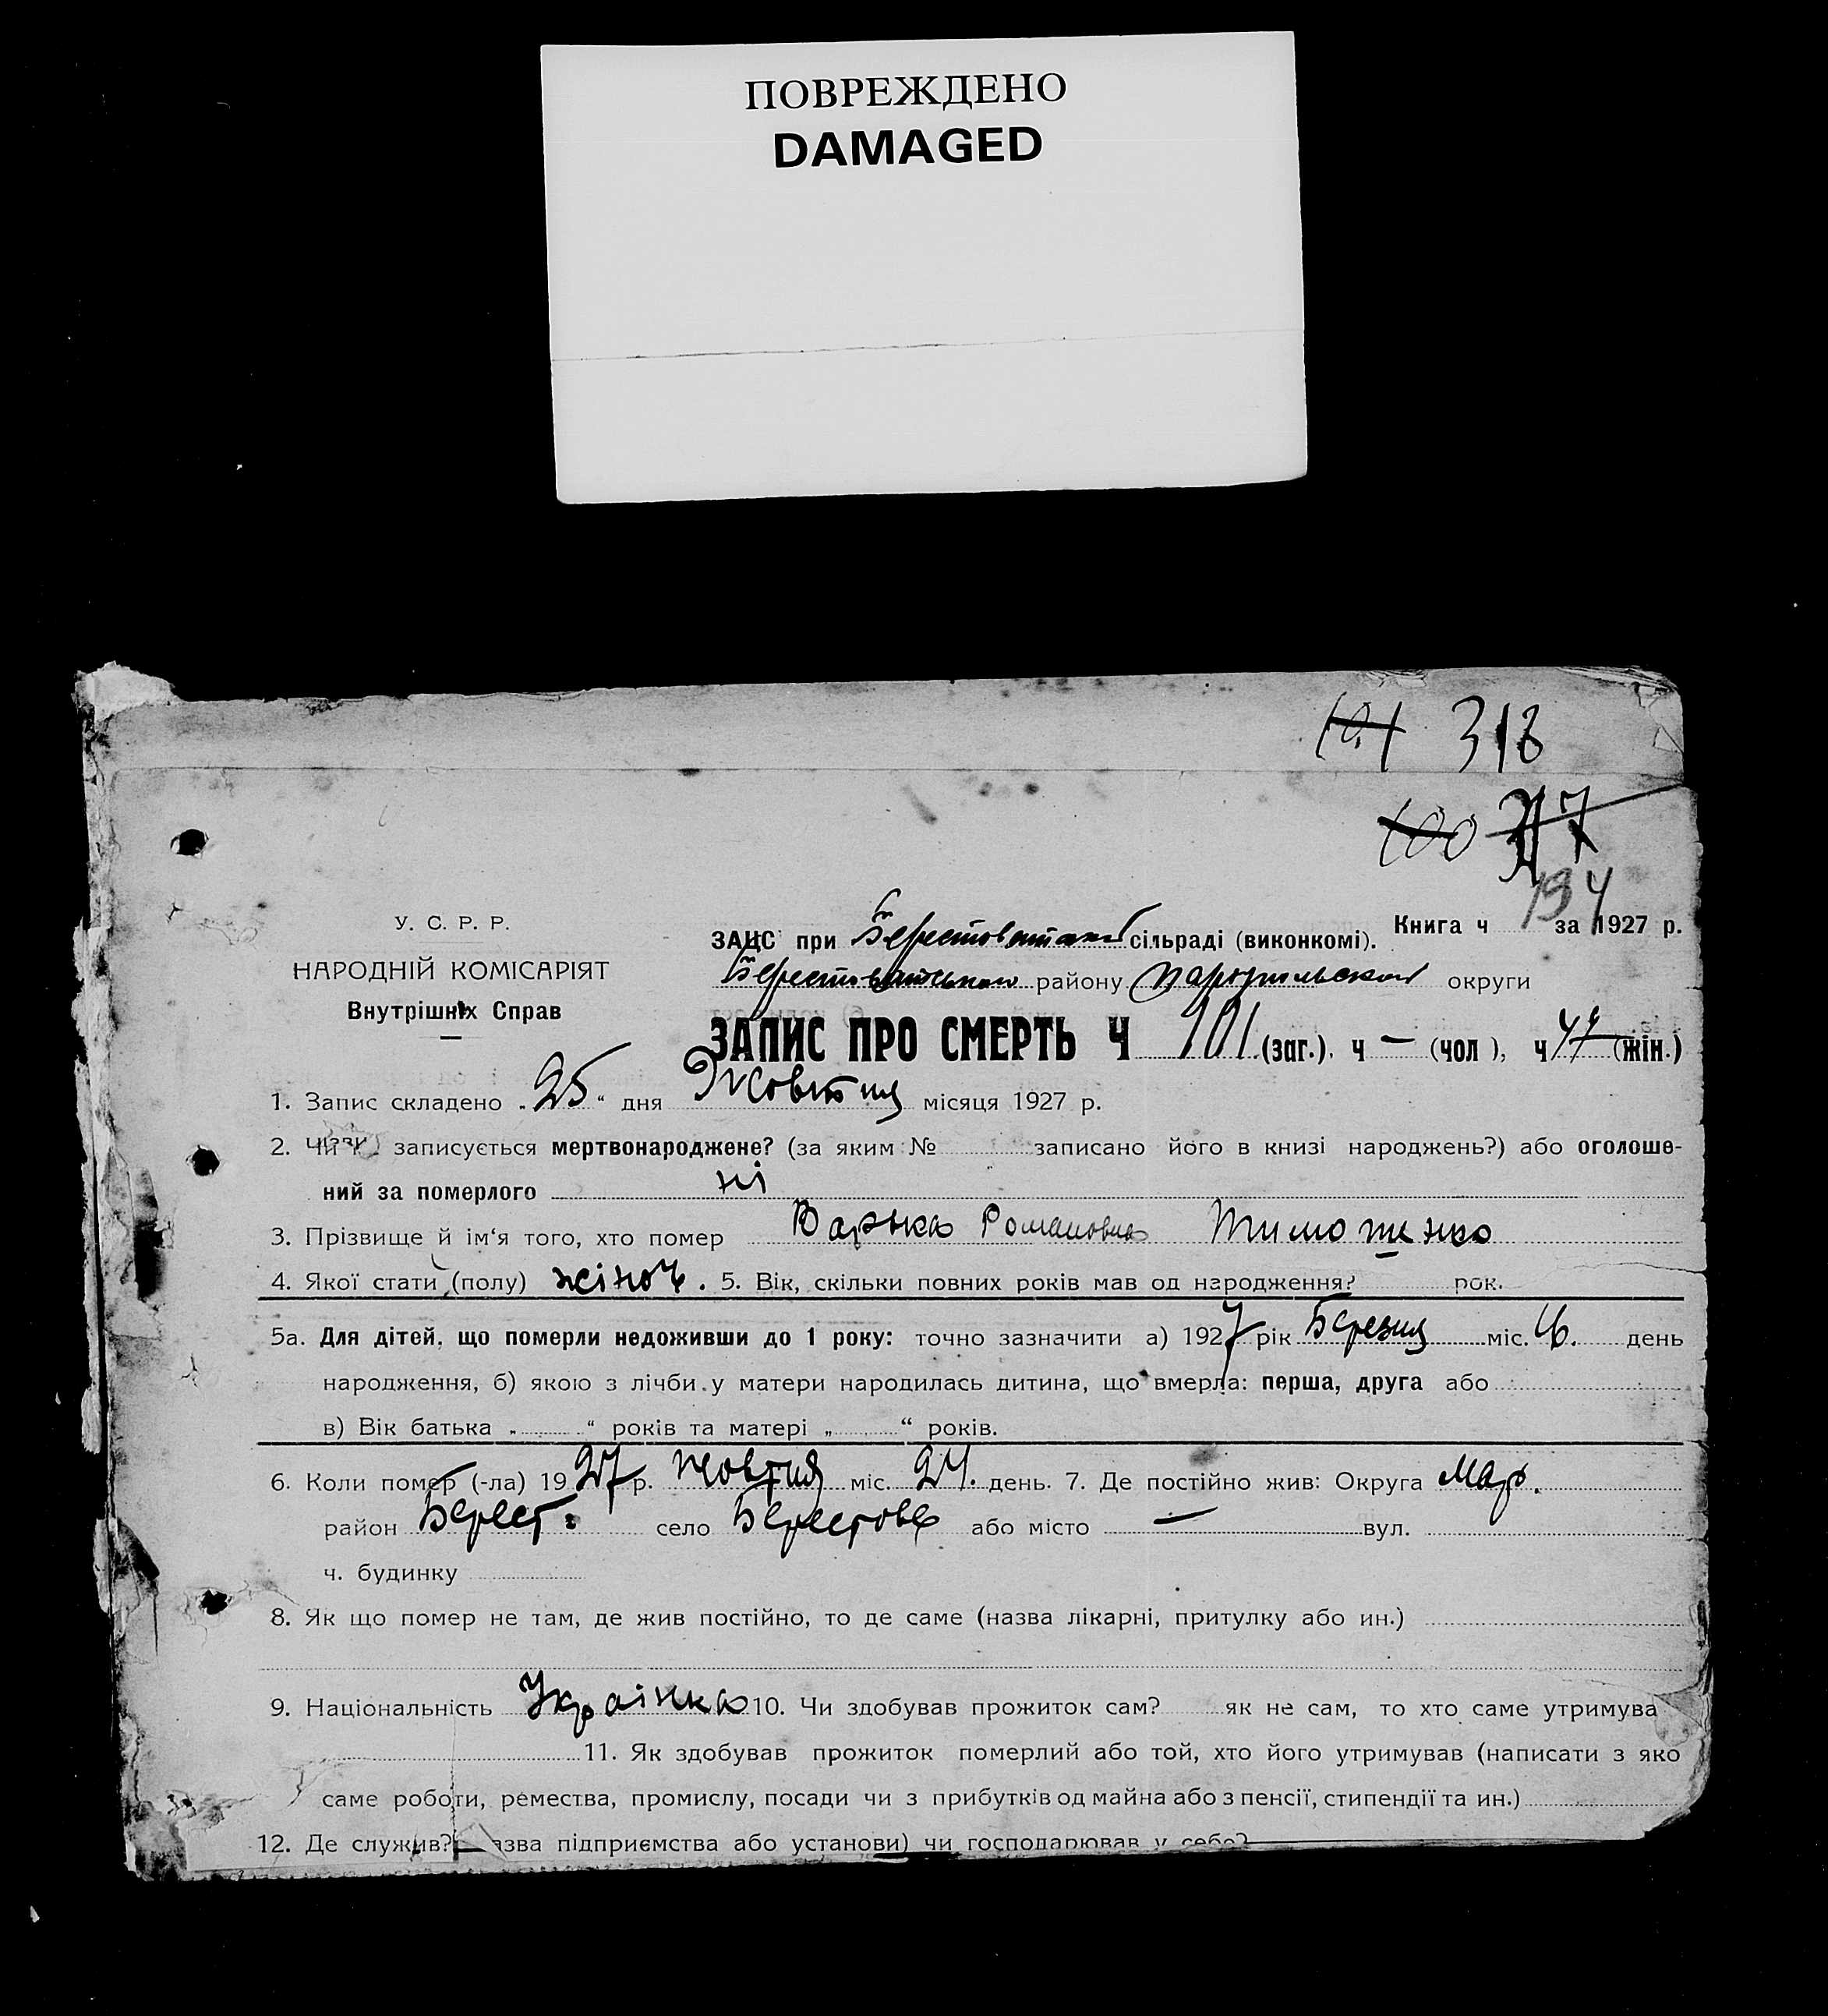 ПОВРЕЖДЕНО
DAMAGED
318
100
194
У. С. Р. Р.
НАРОДНІЙ КОМІСАРІЯТ
Внутрішніх Справ
Книга ч за 1927 р.
ЗАЦС при сільраді (виконкомі).
району округи
ЗАПИС ПРО СМЕРТЬ Ч 101 (заг.). ч — (чол), ч (жін.)
1. Запис складено „25“ дня Жовтня місяця 1927 р.
2. Чи записується мертвонароджене? (за яким № записано його в книзі народжень?) або оголоше-
ний за померлого ні
3. Прізвище й ім‘я того, хто помер Варька Романовна Тимотенко
4. Якої стати (полу) жіноч. 5. Вік, скільки повних років мав од народження? рок.
5а. Для дітей, що померли недоживши до 1 року: точно зазначити а) 1927 рік Березня міс. день
народження, б) якою з лічби у матери народилась дитина, що вмерла: перша, друга або
в) Вік батька „ “ років та матері „ “ років.
6. Коли помер (-ла) 1927 р. жовтня міс. 24. день. 7. Де постійно жив: Округа Мар.
район Берест. село Берестове або місто — вул.
ч. будинку
8. Як що помер не там, де жив постійно, то де саме (назва лікарні, притулку або ин.)
9. Національність Українка 10. Чи здобував прожиток сам? як не сам, то хто саме утримува
11. Як здобував прожиток померлий або той, хто його утримував (написати з яко
саме роботи, ремества, промислу, посади чи з прибутків од майна або з пенсії, стипендії та ин.)
12. Де служив? азва підприємства або установи) чи господарював у себе?